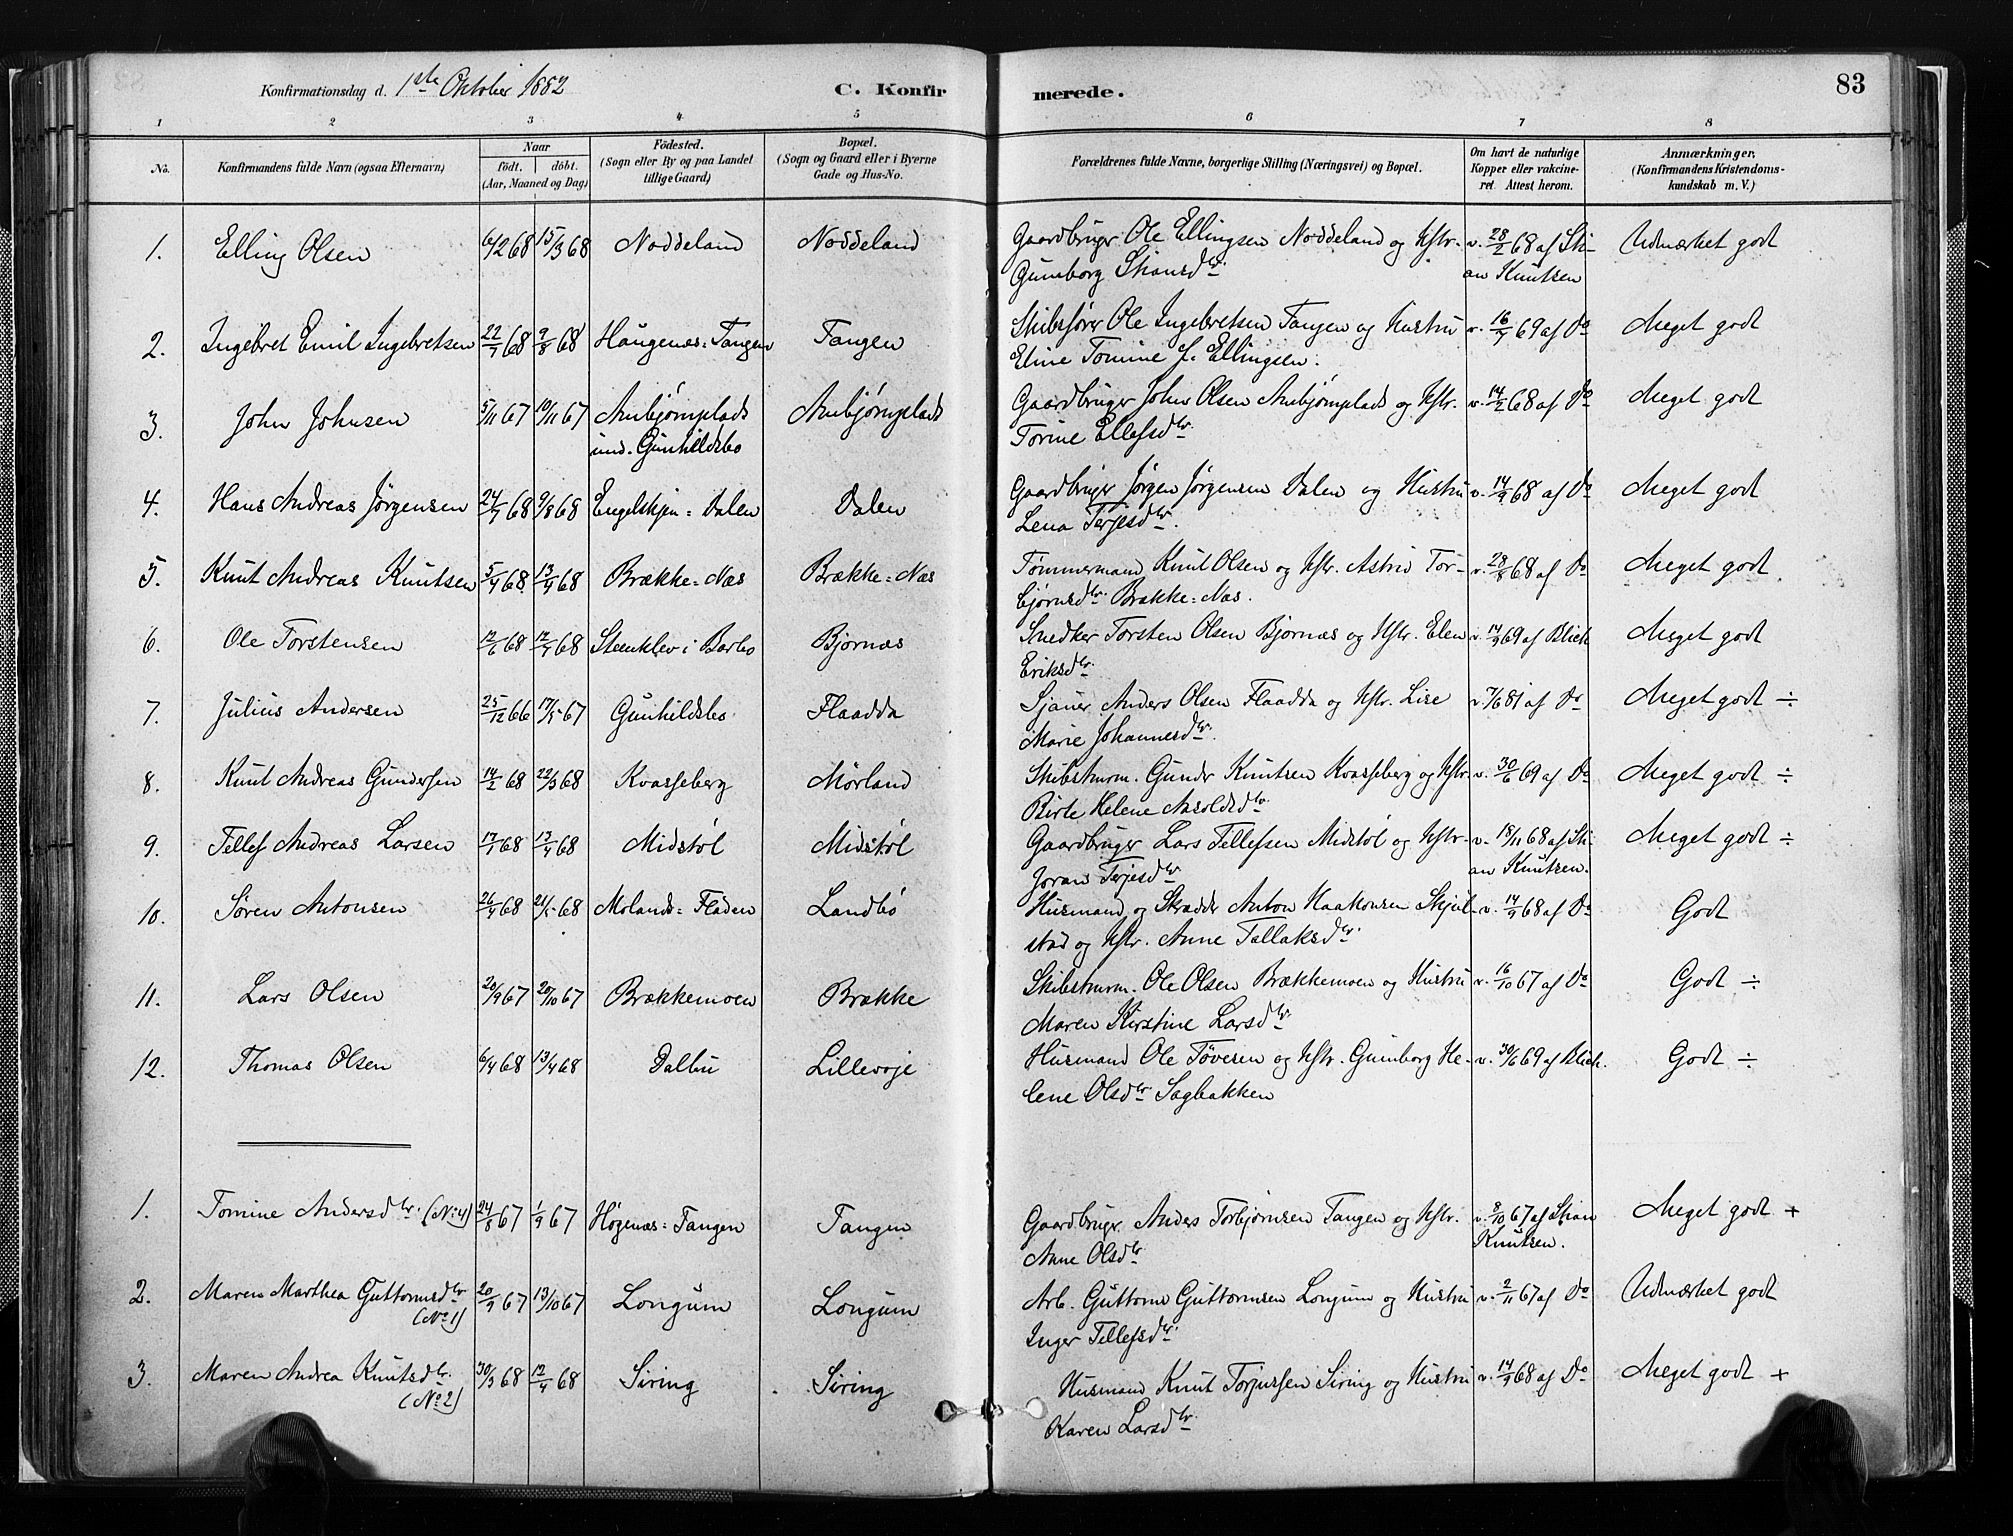 Konfirmationsdag d. 1ste Oktober 1882
C. Konfirmerede.
83
1 2 3 4 5 6 7 8
No.
Konfirmandens fulde Navn (ogsaa Efternavn)
Naar
födt. döbt.
(Aar, Maaned og Dag)
Födested.
(Sogn eller By og paa Landet
tillige Gaard)
Bopæl.
(Sogn og Gaard eller i Byerne
Gade og Hus-No.
Forældrenes fulde Navne, borgerlige Stilling (Næringsvei) og Bopæl.
Om havt de naturlige
Kopper eller vakcine-
ret. Attest herom.
Anmærkninger,
(Konfirmandens Kristendoms-
kundskab m. V.)
1. Elling Olsen 6/2 68 15/3 68 Noddeland Noddeland Gaardbruger Ole Ellingsen Noddeland og Hstr. v. 28/2 68 af Sti- Udmærket godt
Gunborg Stiansdtr. an Knutsen
2. Ingebret Emil Ingebretsen 22/7 68 9/8 68 Haugenæs=Tangen Tangen Skibsfører Ole Ingebretsen Tangen og Hustru v. 16/7 69 af Do Meget godt
Eline Tomine f. Ellingsen.
3. John Johnsen 5/11 67 10/11 67 Anbjørnplads Anbjørnplads Gaardbruger John Olsen Anbjørnplads og Hstr. v. 14/2 68 af Do Meget godt
und. Gunhildsbo Torine Ellefsdtr.
4. Hans Andreas Jörgensen 24/7 68 9/8 68 Engelskjøn=Dalen Dalen Gaardbruger Jörgen Jörgensen Dalen og Hustru v. 14/9 68 af Do Meget godt
Lena Terjesdtr.
5. Knut Andreas Knutsen 5/4 68 13/4 68 Brække=Næs Brække=Næs Tømmermand Knut Olsen og Hstr. Astrid Tor- v. 28/8 68 af Do Meget godt
bjørnsdtr. Brække=Næs.
6. Ole Torstensen 12/6 68 12/7 68 Steenklev i Barbo Bjornæs Snedker Torsten Olsen Bjornæs og Hstr. Elen v. 14/9 69 af Blich Meget godt
Eriksdtr.
7. Julius Andersen 25/12 66 17/5 67 Gunhildsbo Flaadda Sjauer Anders Olsen Flaadda og Hstr. Lise v. 7/6 81 af Do Meget godt ÷
Marie Johannesdtr.
8. Knut Andreas Gundersen 14/2 68 22/3 68 Kvasseberg Mørland Skibstmrm. Gunder Knutsen Kvasseberg og Hstr. v. 30/6 69 af Do Meget godt ÷
Birte Helene Aasoldsdtr.
9. Tellef Andreas Larsen 17/1 68 13/4 68 Midstöl Midstöl Gaardbruger Lars Tellefsen Midstöl og Hstr. v. 18/11 68 af Sti- Meget godt ÷
Joran Terjesdtr an Knutsen.
10. Sören Antonsen 26/4 68 21/5 68 Molands=Fladen Landbö Husmand og Skrædder Anton Haakonsen Skjul- v. 14/9 68 af Do Godt
stad og Hstr. Anne Tallaksdtr.
11. Lars Olsen 20/9 67 20/10 67 Brækkemoen Brække Skibstmrm. Ole Olsen Brækkemoen og Hustru v. 16/10 67 af Do Godt ÷
Maren Kirstine Larsdtr.
12. Thomas Olsen 6/4 68 13/4 68 Dalbu Lillevøje Husmand Ole Töversen og Hstr. Gunborg He- v. 30/6 69 af Blich. Godt ÷
lene Olsdtr. Sagbakken
1. Tomine Andersdtr. (No 4) 24/8 67 1/9 67 Høgenæs=Tangen Tangen Gaardbruger Anders Torbjørnsen Tangen og Hstr. v. 8/10 67 af Stian Meget godt +
Anne Olsdtr Knutsen.
2. Maren Marthea Guttormsdtr 20/9 67 13/10 67 Longum Longum Arb. Guttorm Guttormsen Longum og Hustru v. 2/11 67 af Do Udmærket godt
(No 1) Inger Tellefsdtr.
3. Maren Andrea Knutsdtr. 30/3 68 12/4 68 Siring Siring Husmand Knut Torjussen Siring og Hustru v. 14/9 68 af Do Meget godt +
(No 2) Karen Larsdtr.